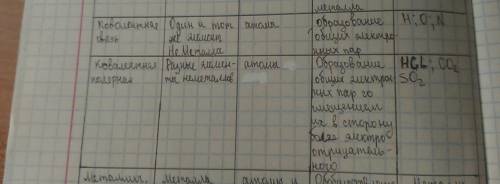 металла
Ковалентная связь
Один и тот же элемент Не Металла
атомы
Образование общих электронных пар
H; O; N
Ковалентная полярная
Разные элементы неметаллов
атомы
Образование общих электронных пар со смещением их в сторону более электроотрицательного
HCL; CO2 SO2
Металлич.
Металла
атомы и